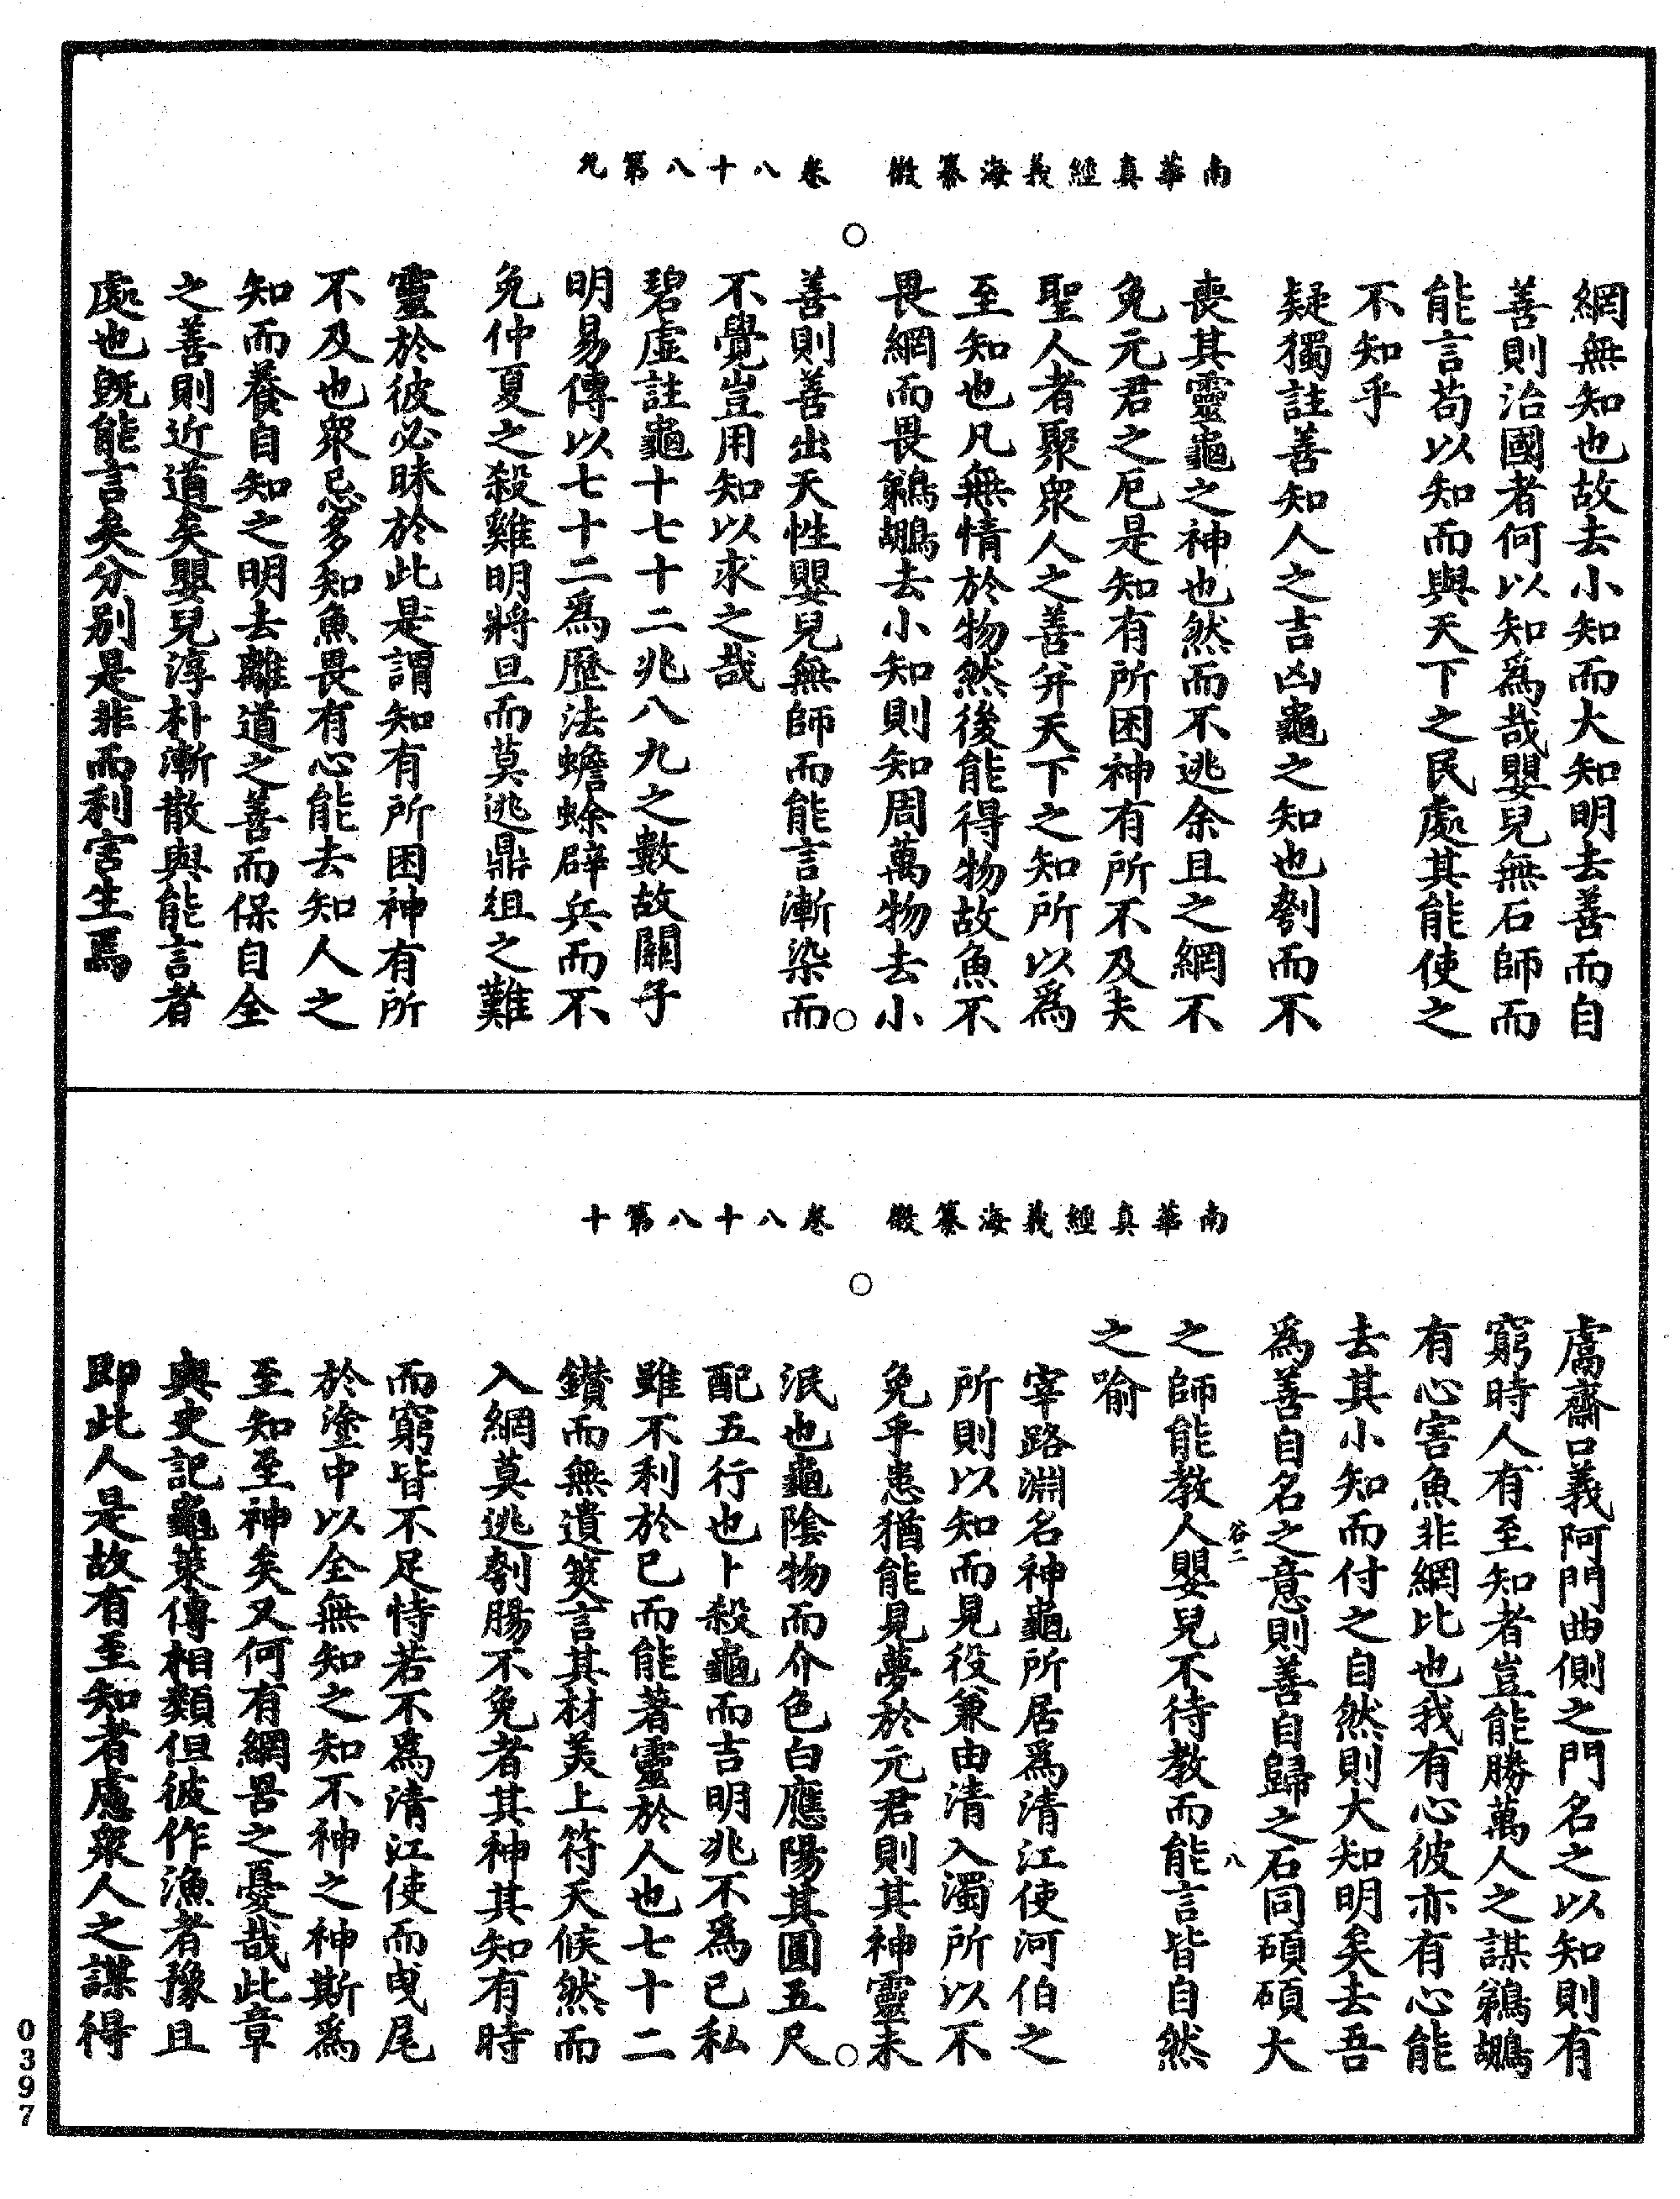 南華真經義海纂微 卷八十八第九
網無知也故去小知而大知明去善而自
善則治國者何以知為哉嬰兒無石師而
能言苟以知而與天下之民處其能使之
不知乎
疑獨註善知人之吉凶龜之知也刳而不
喪其靈龜之神也然而不逃余且之網不
免元君之厄是知有所困神有所不及夫
聖人者聚衆人之善并天下之知所以為
至知也凡無情於物然後能得物故魚不
畏網而畏鵜鶘去小知則知周萬物去小
善則善出天性嬰兒無師而能言漸染而
不覺豈用知以求之哉
碧虛註龜十七十二兆八九之數故關子
明易傳以七十二為歷法蟾蜍辟兵而不
免仲夏之殺雞明將旦而莫逃鼎俎之難
靈於彼必昧於此是謂知有所困神有所
不及也衆忌多知魚畏有心能去知人之
知而養自知之明去離道之善而保自全
之善則近道矣嬰兒淳朴漸散與能言者
處也既能言矣分別是非而利害生焉
南華真經義海纂微 卷八十八第十
鬳齋口義阿門曲側之門名之以知則有
窮時人有至知者豈能勝萬人之謀鵜鶘
有心害魚非網比也我有心彼亦有心能
去其小知而付之自然則大知明矣去吾
為善自名之意則善自歸之石同碩碩大
之師能教人嬰兒不待教而能言皆自然
之喻
谷二 八
宰路淵名神龜所居為清江使河伯之
所則以知而見役兼由清入濁所以不
免乎患猶能見夢於元君則其神靈未
泯也龜陰物而介色白應陽其圓五尺
配五行也卜殺龜而吉明兆不為己私
雖不利於己而能著靈於人也七十二
鑽而無遺筴言其材美上符天候然而
入網莫逃刳腸不免者其神其知有時
而窮皆不足恃若不為清江使而曳尾
於塗中以全無知之知不神之神斯為
至知至神矣又何有網罟之憂哉此章
與史記龜策傳相類但彼作漁者豫且
即此人是故有至知者慮衆人之謀得
0397